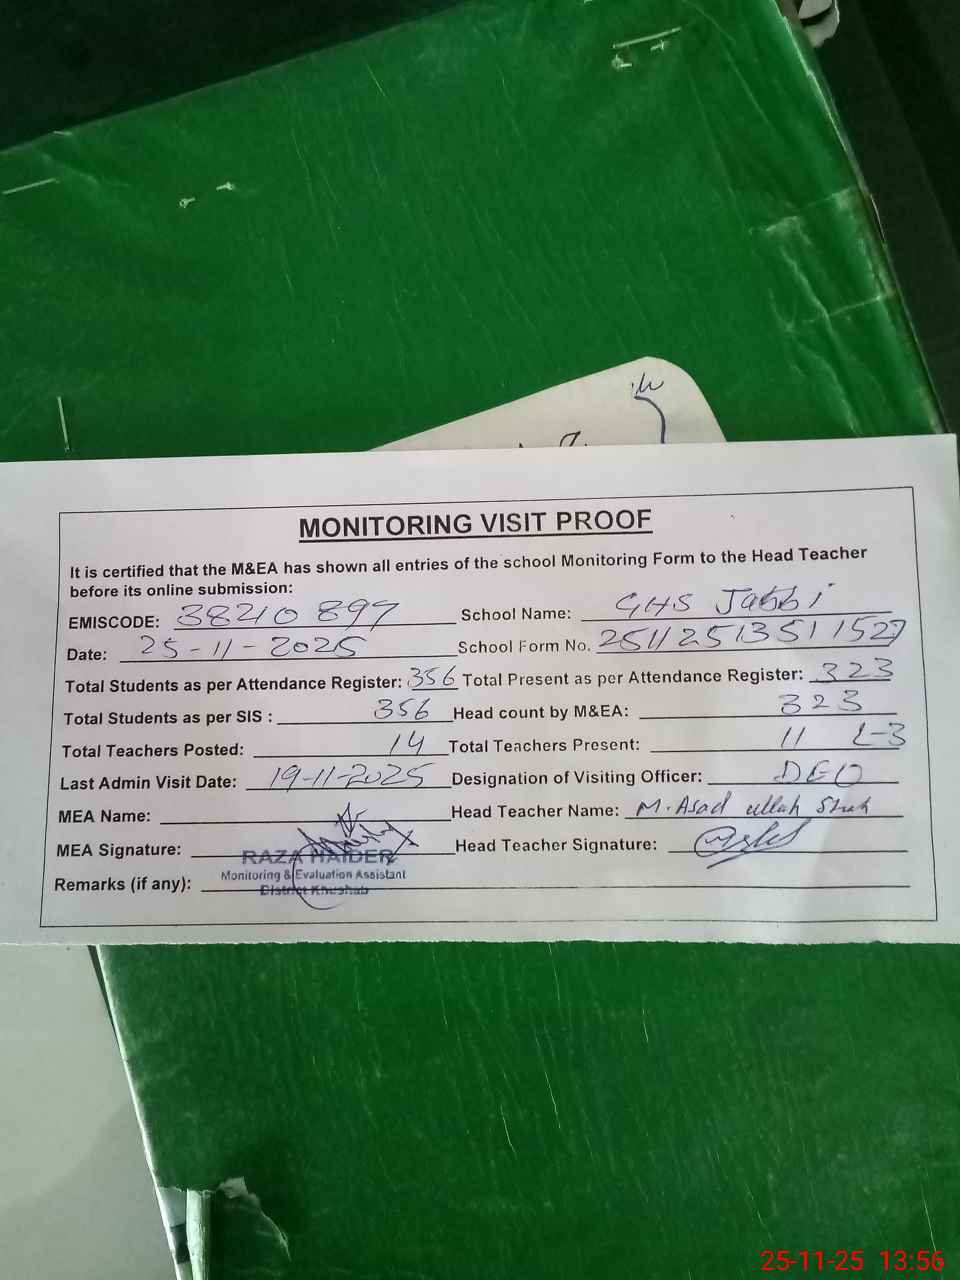 MONITORING VISIT PROOF
It is certified that the M&EA has shown all entries of the school Monitoring Form to the Head Teacher
before its online submission:
EMISCODE: 38210899 School Name: GHS Jabbi
Date: 25-11-2025 School Form No. 25112513511527
Total Students as per Attendance Register: 356 Total Present as per Attendance Register: 323
Total Students as per SIS : 356 Head count by M&EA: 323
Total Teachers Posted: 14 Total Teachers Present: 11 L-3
Last Admin Visit Date: 19-11-2025 Designation of Visiting Officer: DEO
MEA Name: Head Teacher Name: M. Asad ullah Shah
MEA Signature: Head Teacher Signature:
RAZA HAIDER
Monitoring & Evaluation Assistant
District Khushab
Remarks (if any):
25-11-25 13:56